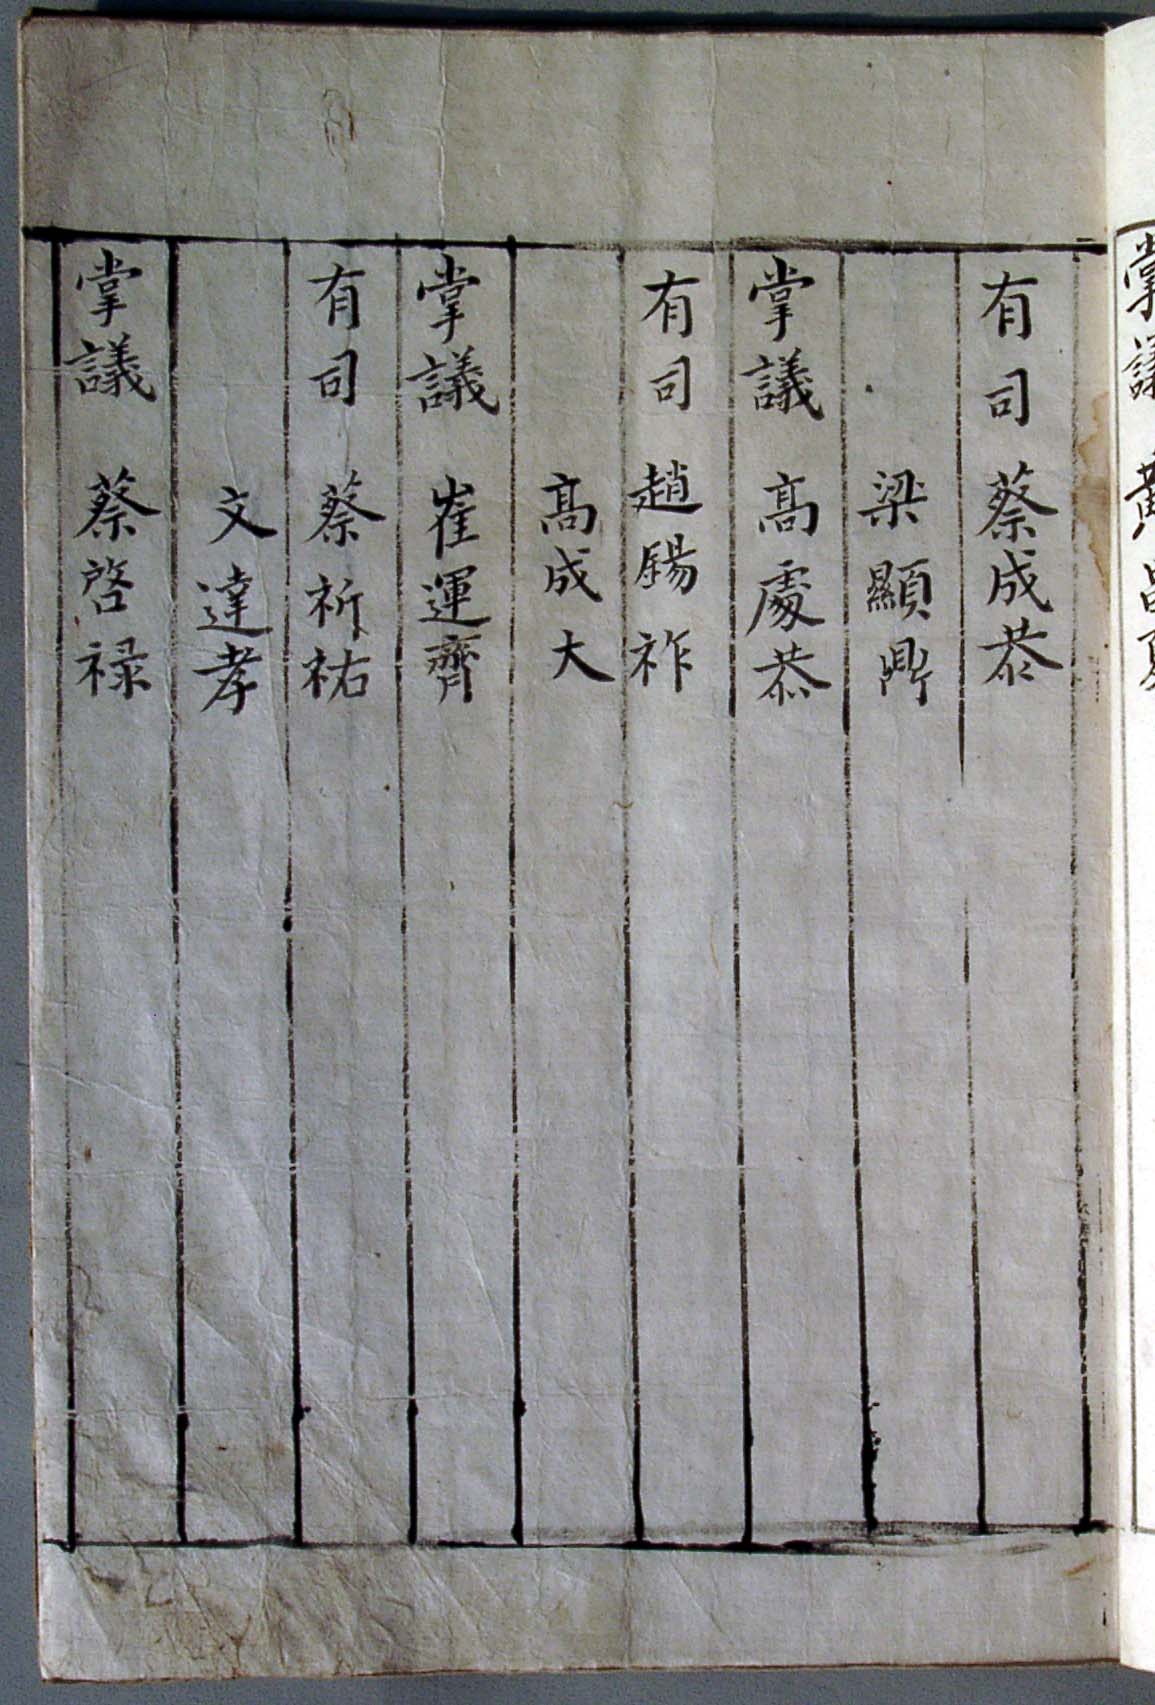 掌議 黄
有司 蔡成恭
梁顯鼎
掌議 高處恭
有司 趙錫祚
高成大
掌議 崔運齊
有司 蔡祈祐
文達孝
掌議 蔡啓祿